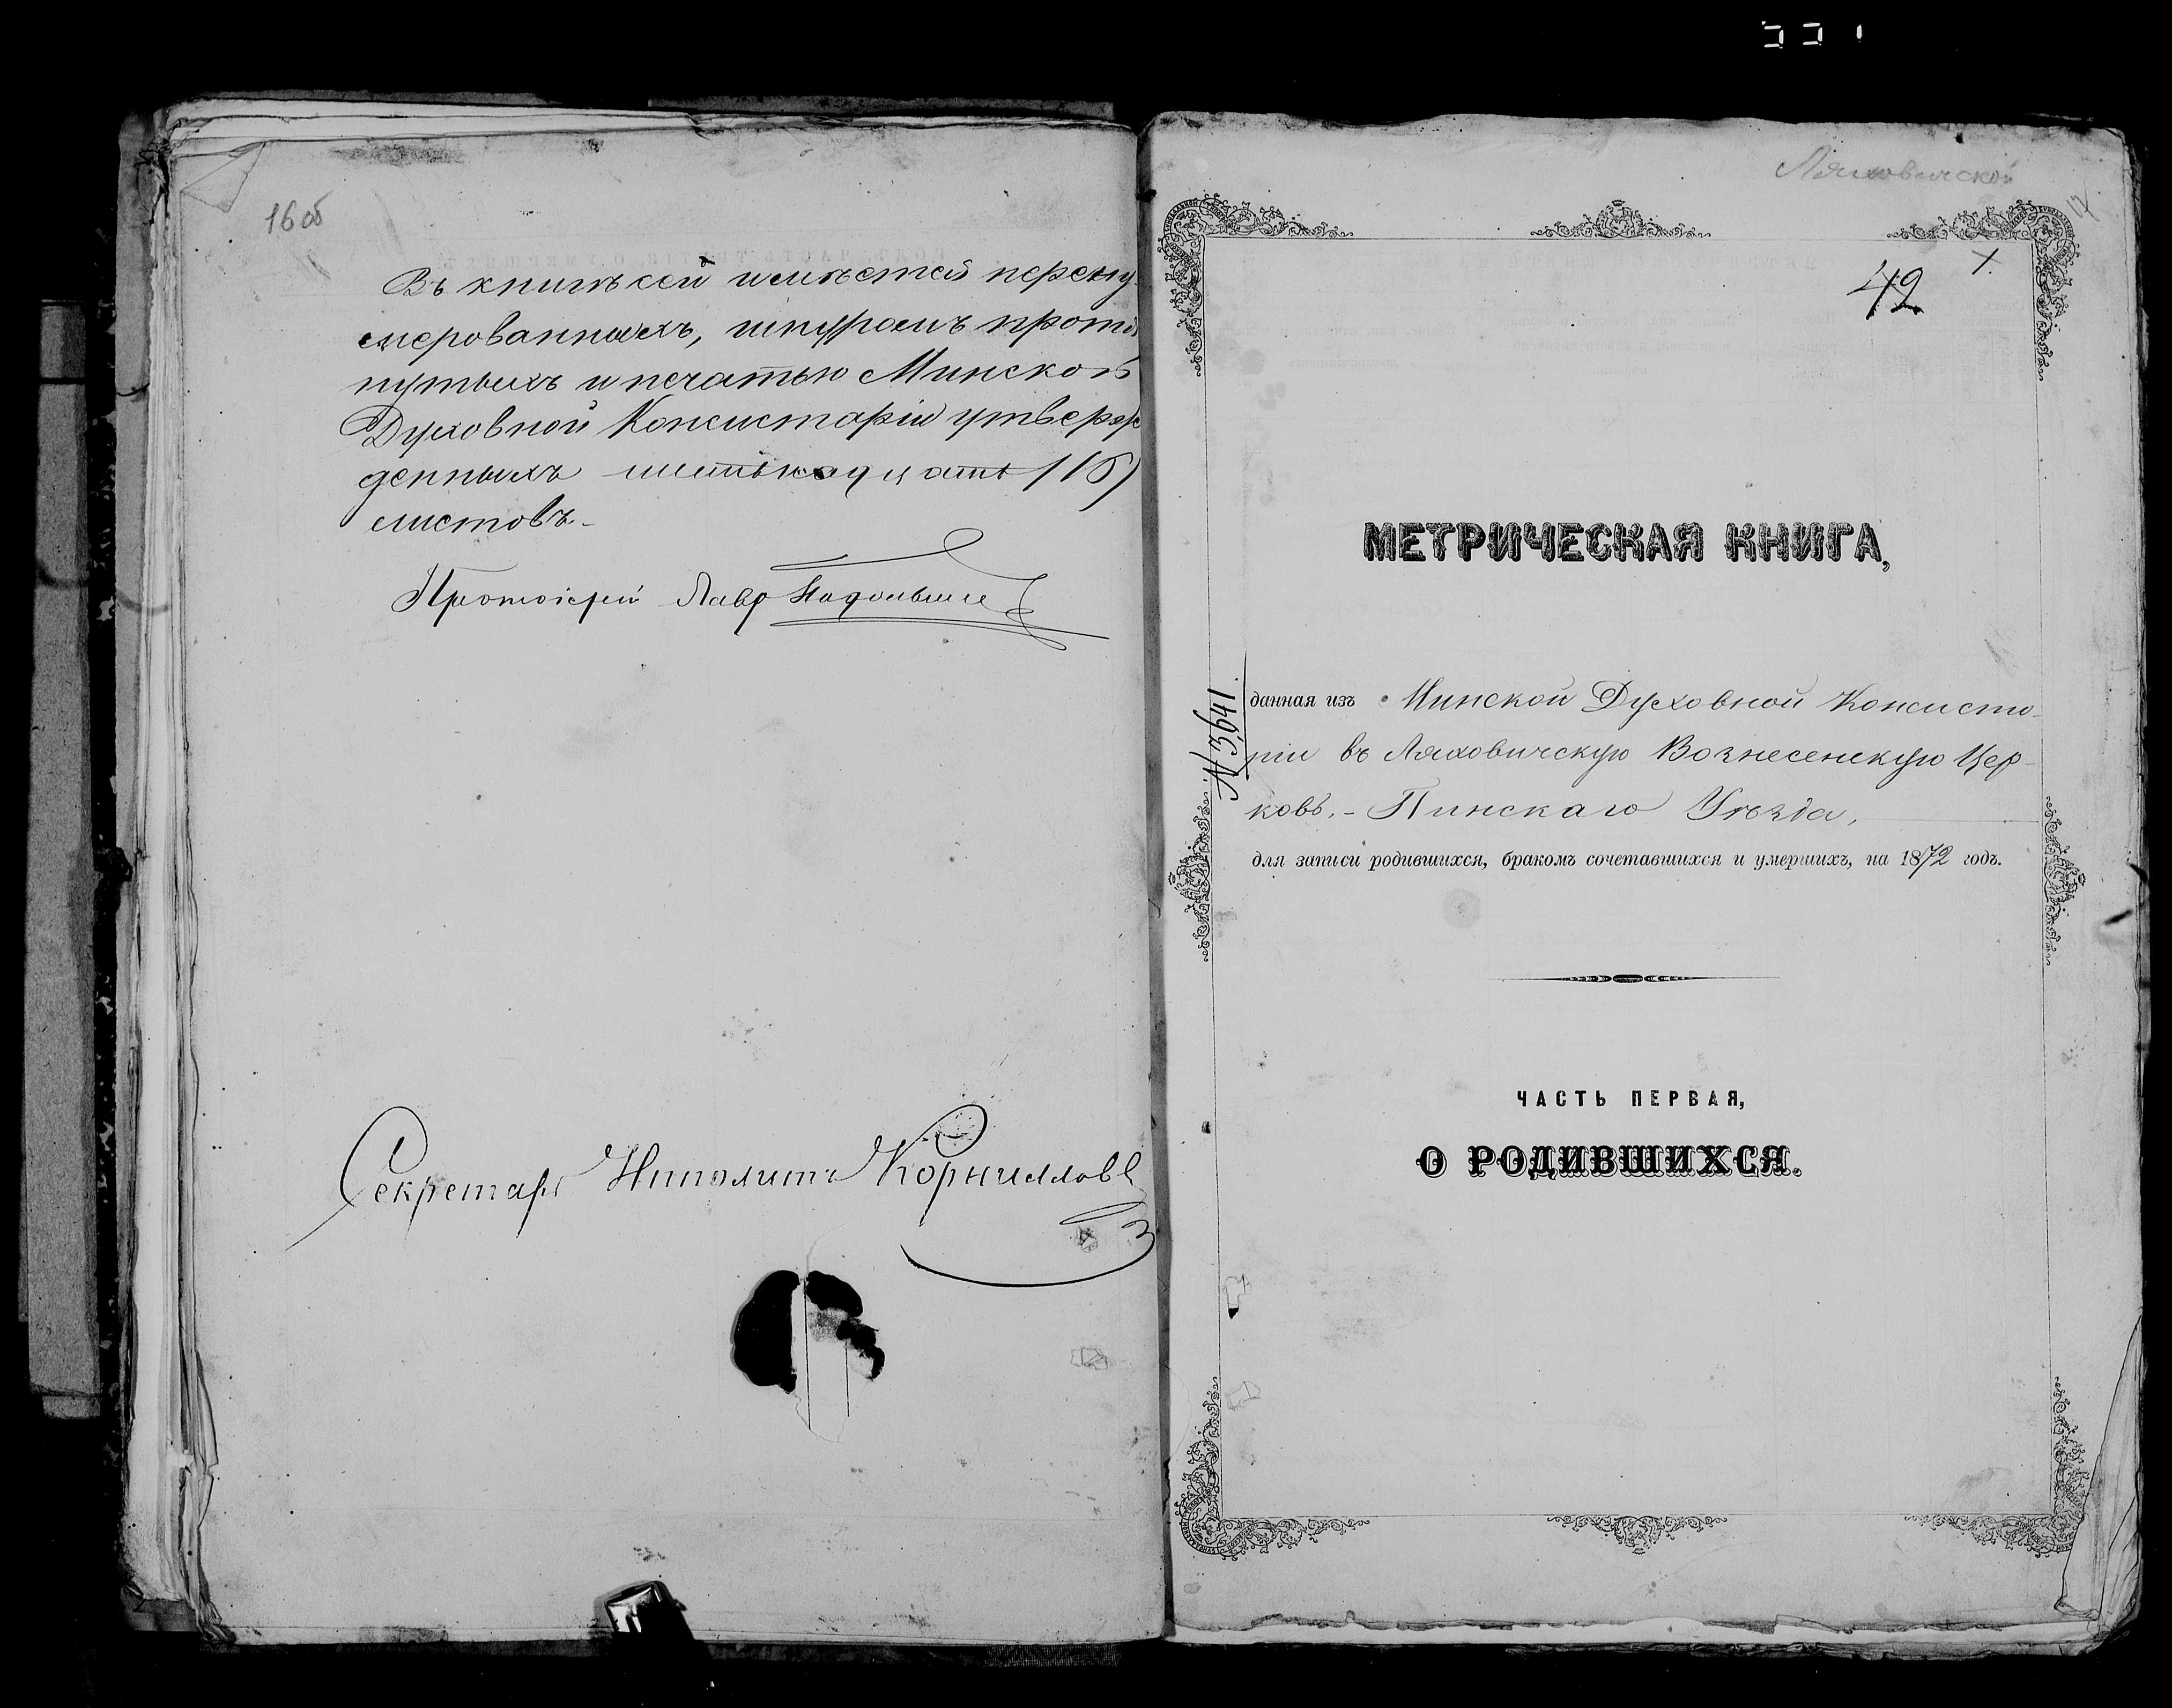 16 об
Въ книгѣ сей имѣется перену-
мерованныхъ, шнуромъ протя
нутыхъ и печатью Минской
Духовной Консисторіи утверж
денныхъ шестьнадцать (16)
листовъ.-
Протоіерей Лавр
Секретарь Ипполитъ Корниловъ
Ляховичской
17
1.
42
МЕТРИЧЕСКАЯ КНИГА,
№ 3,641.
данная изъ Минской Духовной Консисто-
ріи въ Ляховичскую Вознесенскую Цер-
ковь.- Пинскаго Уѣзда,
для записи родившихся, бракомъ сочетавшихся и умершихъ, на 1872 годъ.
ЧАСТЬ ПЕРВАЯ,
О РОДИВШИХСЯ.